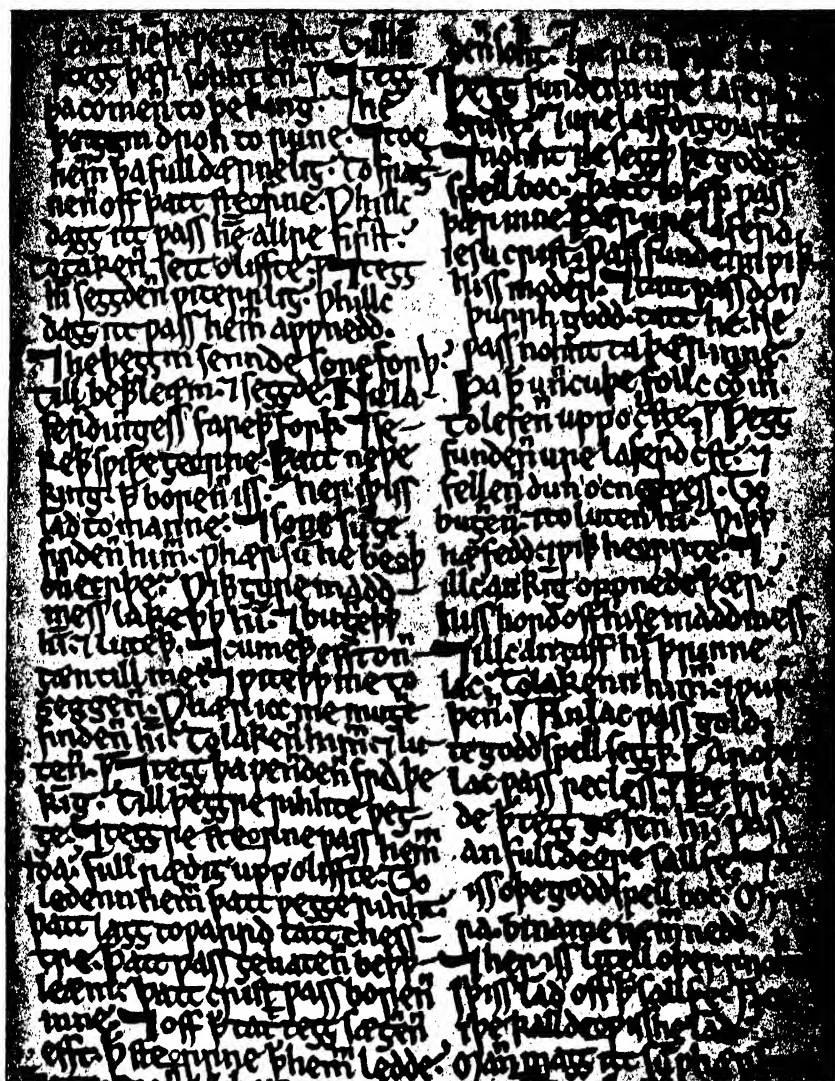 ledenn hē þe weȝȝe rihht. Till
þeȝȝ wass wunnenn. ⁊ teȝȝ
þa comenn to þe king. ⁊ he
droh to rune. ⁊ toc
hem þa full dærnelig. To fraȝ
nenn off þatt steorrne. Whillc
daȝȝ itt wass hē allre firrst.
sett o liffte. ⁊ teȝȝ
hī seȝȝdenn witerrlig. Whillc
daȝȝ itt wass hem awwnedd.
⁊ he þeȝȝm sennde sone forþ.
Till beþleæm. ⁊ seȝȝde. Nu la
ferdingess fareþþ forþ. ⁊ se
keþþ swiþe ȝeorrne. þatt newe
king. þ borenn iss. her iþiss
lad to manne. ⁊ sone su ȝe
findenn him. Whær su he beoþ
Wiþ ȝure madd
mess lakeþþ hī. ⁊ buȝeþþ
hī. ⁊ luteþþ. ⁊ cumeþþ efft onn
ȝæn till me. ⁊ witeþþ me to
seggenn. Whær icc me muȝe
findenn hī. To lakenn himm. ⁊ lu
tenn. ⁊ teȝȝ þa wenndenn frā þe
kīg. Till þeȝȝre rihhte weȝ
ȝe. ⁊ teȝȝre steorrne wass hem
þa. full rædig upp o liffte. To
ledenn hem þatt weȝȝe rihht.
þatt laȝȝ towarrd tatt chess
tre. þatt wass ȝehatenn beþþ
leæm. þatt crist wass borenn
inne. ⁊ off þ tatt teȝȝ sæȝenn
efft. þ steorrne þ hem ledde.
denn sohht.
þeȝȝ fundenn ure laferrd
crist. ⁊ ure laffdiȝ
⁊ nohht ne seȝȝþ þe godd
spell boc. þatt ioseþ wass
þær inne. þær ure laferrd
iesu crist. wass fundenn wiþ
hiss moderr. ⁊ tatt wass don
þurrh godd. tatt he. ne
wass nohht ta þær inne.
þa þ uncuþe follc com.
To lefenn uppo crist. ⁊ þeȝȝ
fundenn ure laferrd crist. ⁊
fellenn dun o cnewwess. To
buȝenn. ⁊ to lutenn hī. Wiþþ
hæfedd. ⁊ wiþ herrte. ⁊
illc an kīg oppnede þær.
hiss hord off hise maddmess
⁊ illc an gaff hī þrinne
lac. To lakenn himm. ⁊ wur
þenn. ⁊ an lac wass gold.
te goddspell seȝȝþ. ⁊ an oþerr
lac wass recless. ⁊ þe þrid
de þ teȝȝ gæfenn hī. wass
an full deore sallfe.
iss o þe goddspell boc. Myr
ra. bi name nemmnedd.
⁊ her iss litell operr nohht
iþiss lad off þ sallfe.
þe kalldewisshe lad.
Man maȝȝ itt